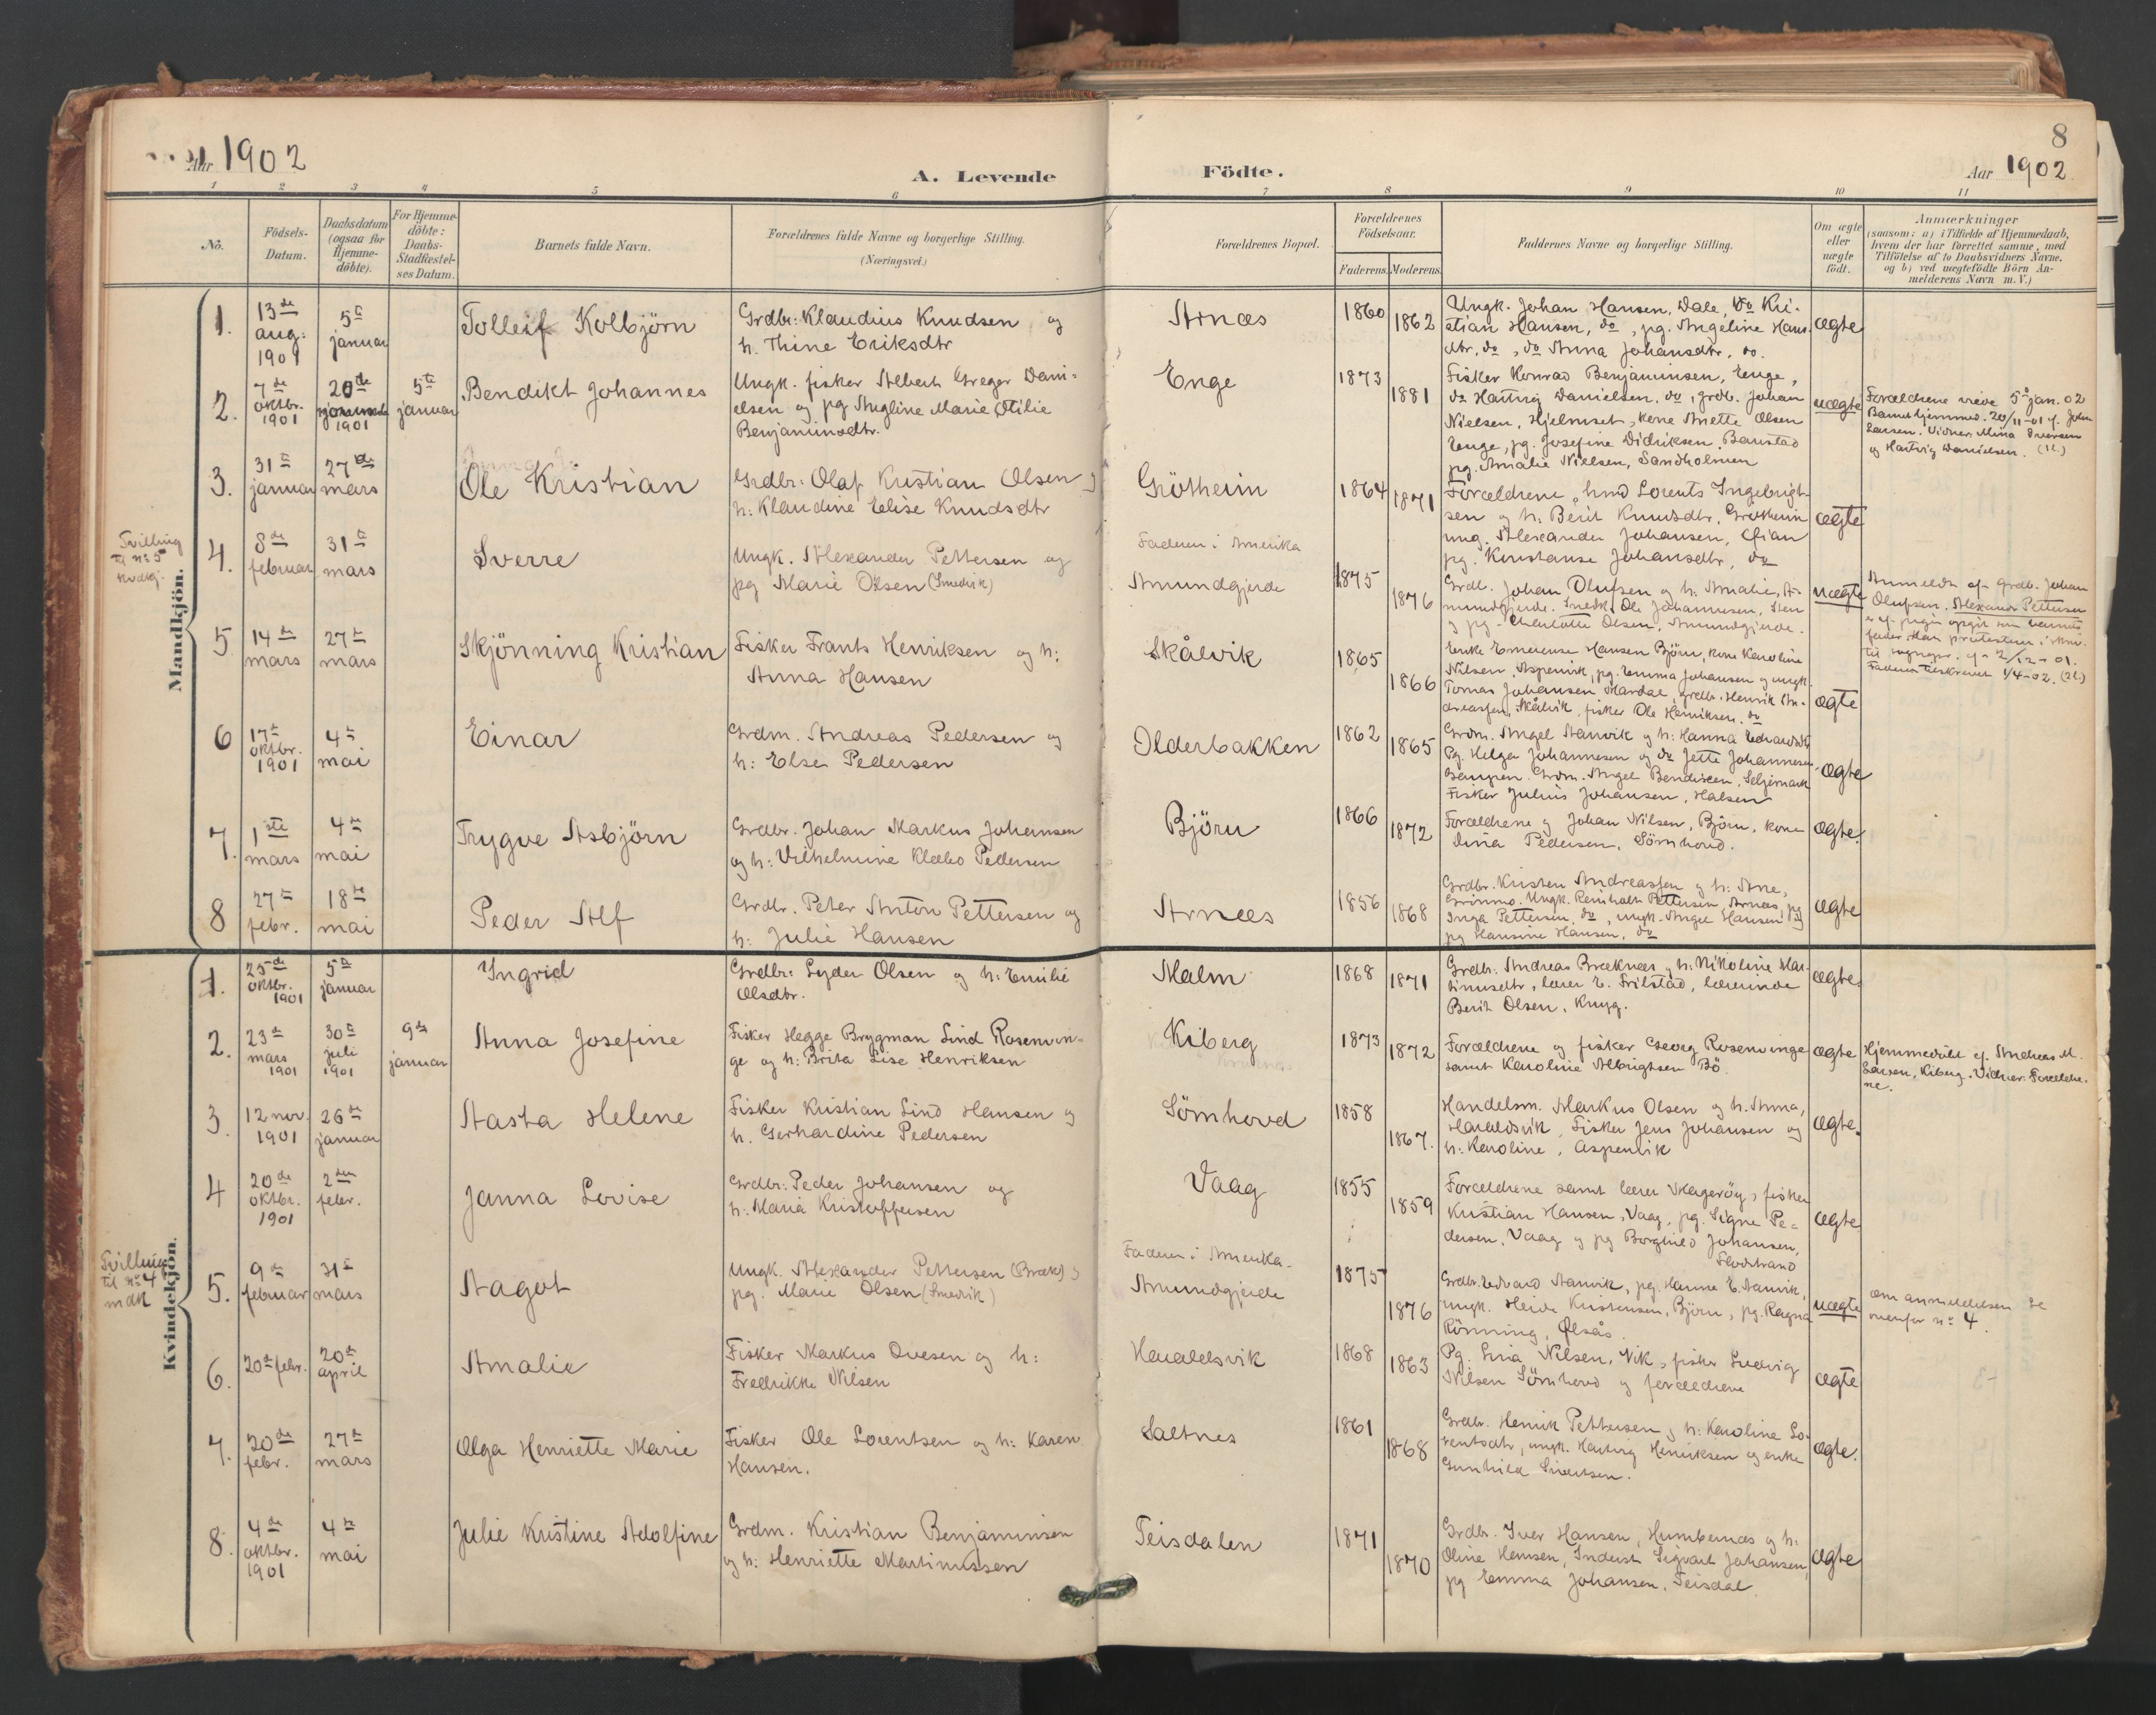 Aar 1902
A. Levende
Födte.
8
Aar 1902
1 2 3 4 5 6 7 8 9 10 11
No.
Födsels-
Datum.
Daabsdatum
(ogsaa for
Hjemme-
döbte).
For Hjemme-
döbte:
Daabs-
Stadfæstel-
ses Datum.
Barnets fulde Navn.
Forældrenes fulde Navne og borgerlige Stilling.
(Næringsvei.)
Forældrenes Bopæl.
Forældrenes
Födselsaar.
Faderens. Moderens.
Faddernes Navne og borgerlige Stilling.
Om ægte
eller
uægte
födt.
Anmærkninger
(saasom: a) i Tilfælde af Hjemmedaab,
hvem der har forrettet samme, med
Tilföielse af to Daabsvidners Navne.
og b) ved uægtefödte Börn An-
melderens Navn m.V.)
Mandkjön.
1.
13de
aug:
1901
5te
januar
Tolleif Kolbjörn
Grdbr: Klaudius Knudsen og
h. Thine Eriksdtr
Arnæs
1860
1862
Ungk. Johan Hansen, Dale, do Kri-
stian Hansen, do, pg. Angeline Hans-
dtr, do, do Anna Johansdtr. do.
ægte
2.
7de
oktbr.
1901
20de
1901
5te
januar
Bendikt Johannes
Ungk. fisker Albert Greger Dani-
elsen og pg Angline Marie Otilie
Benjaminsdtr.
Enge
1873
1881
Fisker Konrad Benjaminsen, Enge,
do Hartvig Danielsen, do, grdb. Johan
Nielsen, Hjelmset, kone Anette Olsen
Enge, pg. Josefine Didriksen, Baustad
pg. Amalie Nielsen, Sandholmen
uægte
Forældrene viede 5te jan. 02
Barnet hjemmed. 20/11-01 af John
Larsen. Vidner: Mina Iversen
og Hartvig Danielsen. (1l.)
3.
31te
januar
27de
mars
Ole Kristian
Grdbr: Olaf Kristian Olsen og
h: Klaudine Elise Knudsdtr
Grötheim
1864
1871
Forældrene, hmd Lorents Ingebrigt-
sen og h: Berit Knudsdtr, Grötheim
ung. Alexander Johansen,
pg. Konstanse Johansdtr, do
ægte
Tvilling
til no 5
kvdkj.
4.
8de
februar
31te
mars
Sverre
Ungk. Alexander Pettersen og
pg Marie Olsen (Smedvik)
Faderen i Amerika
Amundgjerde
1875
1876
Grdb. Johan Olufsen og h: Amalie, A-
mundgjerde. Snedk. Ole Johannesen, Sten
og pg. Charlotte Olsen, Amundgjerde.
uægte
Anmeldt af grdb. Johan
Olufsen. Alexander Pettersen
er af pigen opgit som barnets
fader. Han protesterer i skriv.
til sognepr. af 2/12-01.
Faderen tilskrevet 1/4-02. (2l.)
5
14de
mars
27de
mars
Skjönning Kristian
Fisker Frants Henriksen og h:
Anna Hansen
Skålvik
1865
1866
Enke Emerense Hansen Björn, kone Karoline
Nilsen, Aspenvik, pg. Emma Johansen og ungk.
Tomas Johansen Mardal, grdbr. Henrik An-
dreassen, Skålvik, fisker Ole Henriksen. do
ægte
6
17de
oktbr.
1901
4de
mai
Einar
Grdm. Andreas Pedersen og
h: Else Pedersen
Olderbakken
1862
1865
Grdm. Angel Stanvik og h: Hanna Edvardsdtr
Pg. Helga Johannesen og do Jette Johannesen
Grdm. Angel Bendiksen, Seljemark
Fisker Julius Johansen, Halsen
ægte
7.
1ste
mars
4de
mai
Trygve Asbjörn
Grdbr. Johan Markus Johansen
og h: Vilhelmine Klæbo Pedersen
Björn
1866
1872
Forældrene og Johan Nilsen, Björn, kone
Dina Pedersen, Sörnhovd.
ægte.
8
27de
febr.
18de
mai
Peder Alf
Grdbr. Peter Anton Pettersen og
h: Julie Hansen
Arnæs
1856
1868
Grdbr. Kristen Andreassen og h: Ane,
Grinmo. Ungk. Reinholt Pettersen Arnæs, pg
Inga Pettersen, do, ungk. Angel Hansen, do
pg Hansine Hansen, do
ægte
Kvindekjön.
1.
25de
oktbr.
1901
5te
januar
Ingrid
Grdbr: Lyder Olsen og h: Emilie
Olsdtr.
Malm
1868
1871
Grdb: Andreas Bræknæs og h: Nikoline Mar-
tinusdtr, lærer E. Frilstad, lærerinde
Berit Olsen, Knyg.
ægte
2.
23de
mars
1901
30te
juli
1901
9de
januar
Anna Josefine
Fisker Hegge Brygman Lind Rosenvin-
ge og h: Brita Lise Henriksen
Kiberg
1873
1872
Forældrene og fisker Georg Rosenvinge
samt Karoline Albrigtsen Bö.
ægte
Hjemmedöbt af Andreas M.
Larsen, Kiberg. Vidner: Forældre-
ne.
3.
12 nov.
1901
26de
januar
Aasta Helene
Fisker Kristian Lind Hansen og
h. Gerhardine Pedersen
Sörnhovd
1858
1867.
Handelsm. Markus Olsen og h. Anna,
Haraldsvik, Fisker Jens Johansen og
h: Karoline, Aspenvik
ægte.
4
20de
oktbr.
1901
2den
febr.
Janna Lovise
Grdbr: Peder Johansen og
h: Maria Kristoffersen
Vaag
1855
1859
Forældrene samt lærer Skageröy, fisker
Kristian Hansen, Vaag, pg. Signe Pe-
dersen, Vaag og pg Borghild Johansen,
Flodstrand
ægte
Tvilling
til no 4
mdk
5.
9de
februar
31te
mars
Aagot
Ungk. Alexander Pettersen (Bræk) og
pg. Marie Olsen (Smedvik)
Faderen i Amerika.
Amundgjerde
1875
1876
Grdbr. Edvard Stanvik, pg. Hanna E. Stanvik,
ungk. Heide Kristensen, Björn, pg. Ragna
Rönning, Ølsås.
uægte
Om anmeldelsen se
ovenfor no 4.
6.
20de febr.
20de
april
Amalie
Fisker Markus Ovesen og h:
Fredrikke Nilsen
Haraldsvik
1868
1863
Pg. Lina Nilsen, Vik, fisker Ludvig
Nilsen Sörnhovd og forældrene
ægte
7.
20de
febr.
27de
mars
Olga Henriette Marie
Fisker Ole Lorentsen og h: Karen
Hansen.
Saltnes
1861
1868
Grdbr. Henrik Pettersen og h: Karoline Lo-
rentsdtr, ungk. Hartvig Henriksen og enke
Gunhild Sivertsen.
ægte.
8.
4de
oktbr.
1901
4de
mai
Julie Kristine Adolfine
Grdm. Kristian Benjaminsen
og h: Henriette Martinussen
Teisdalen
1871
1870
Grdbr. Iver Hansen, Humbernæs og h:
Oline Hansen, Inderst Sigvart Johansen,
pg Emma Johansen, Teisdal.
ægte